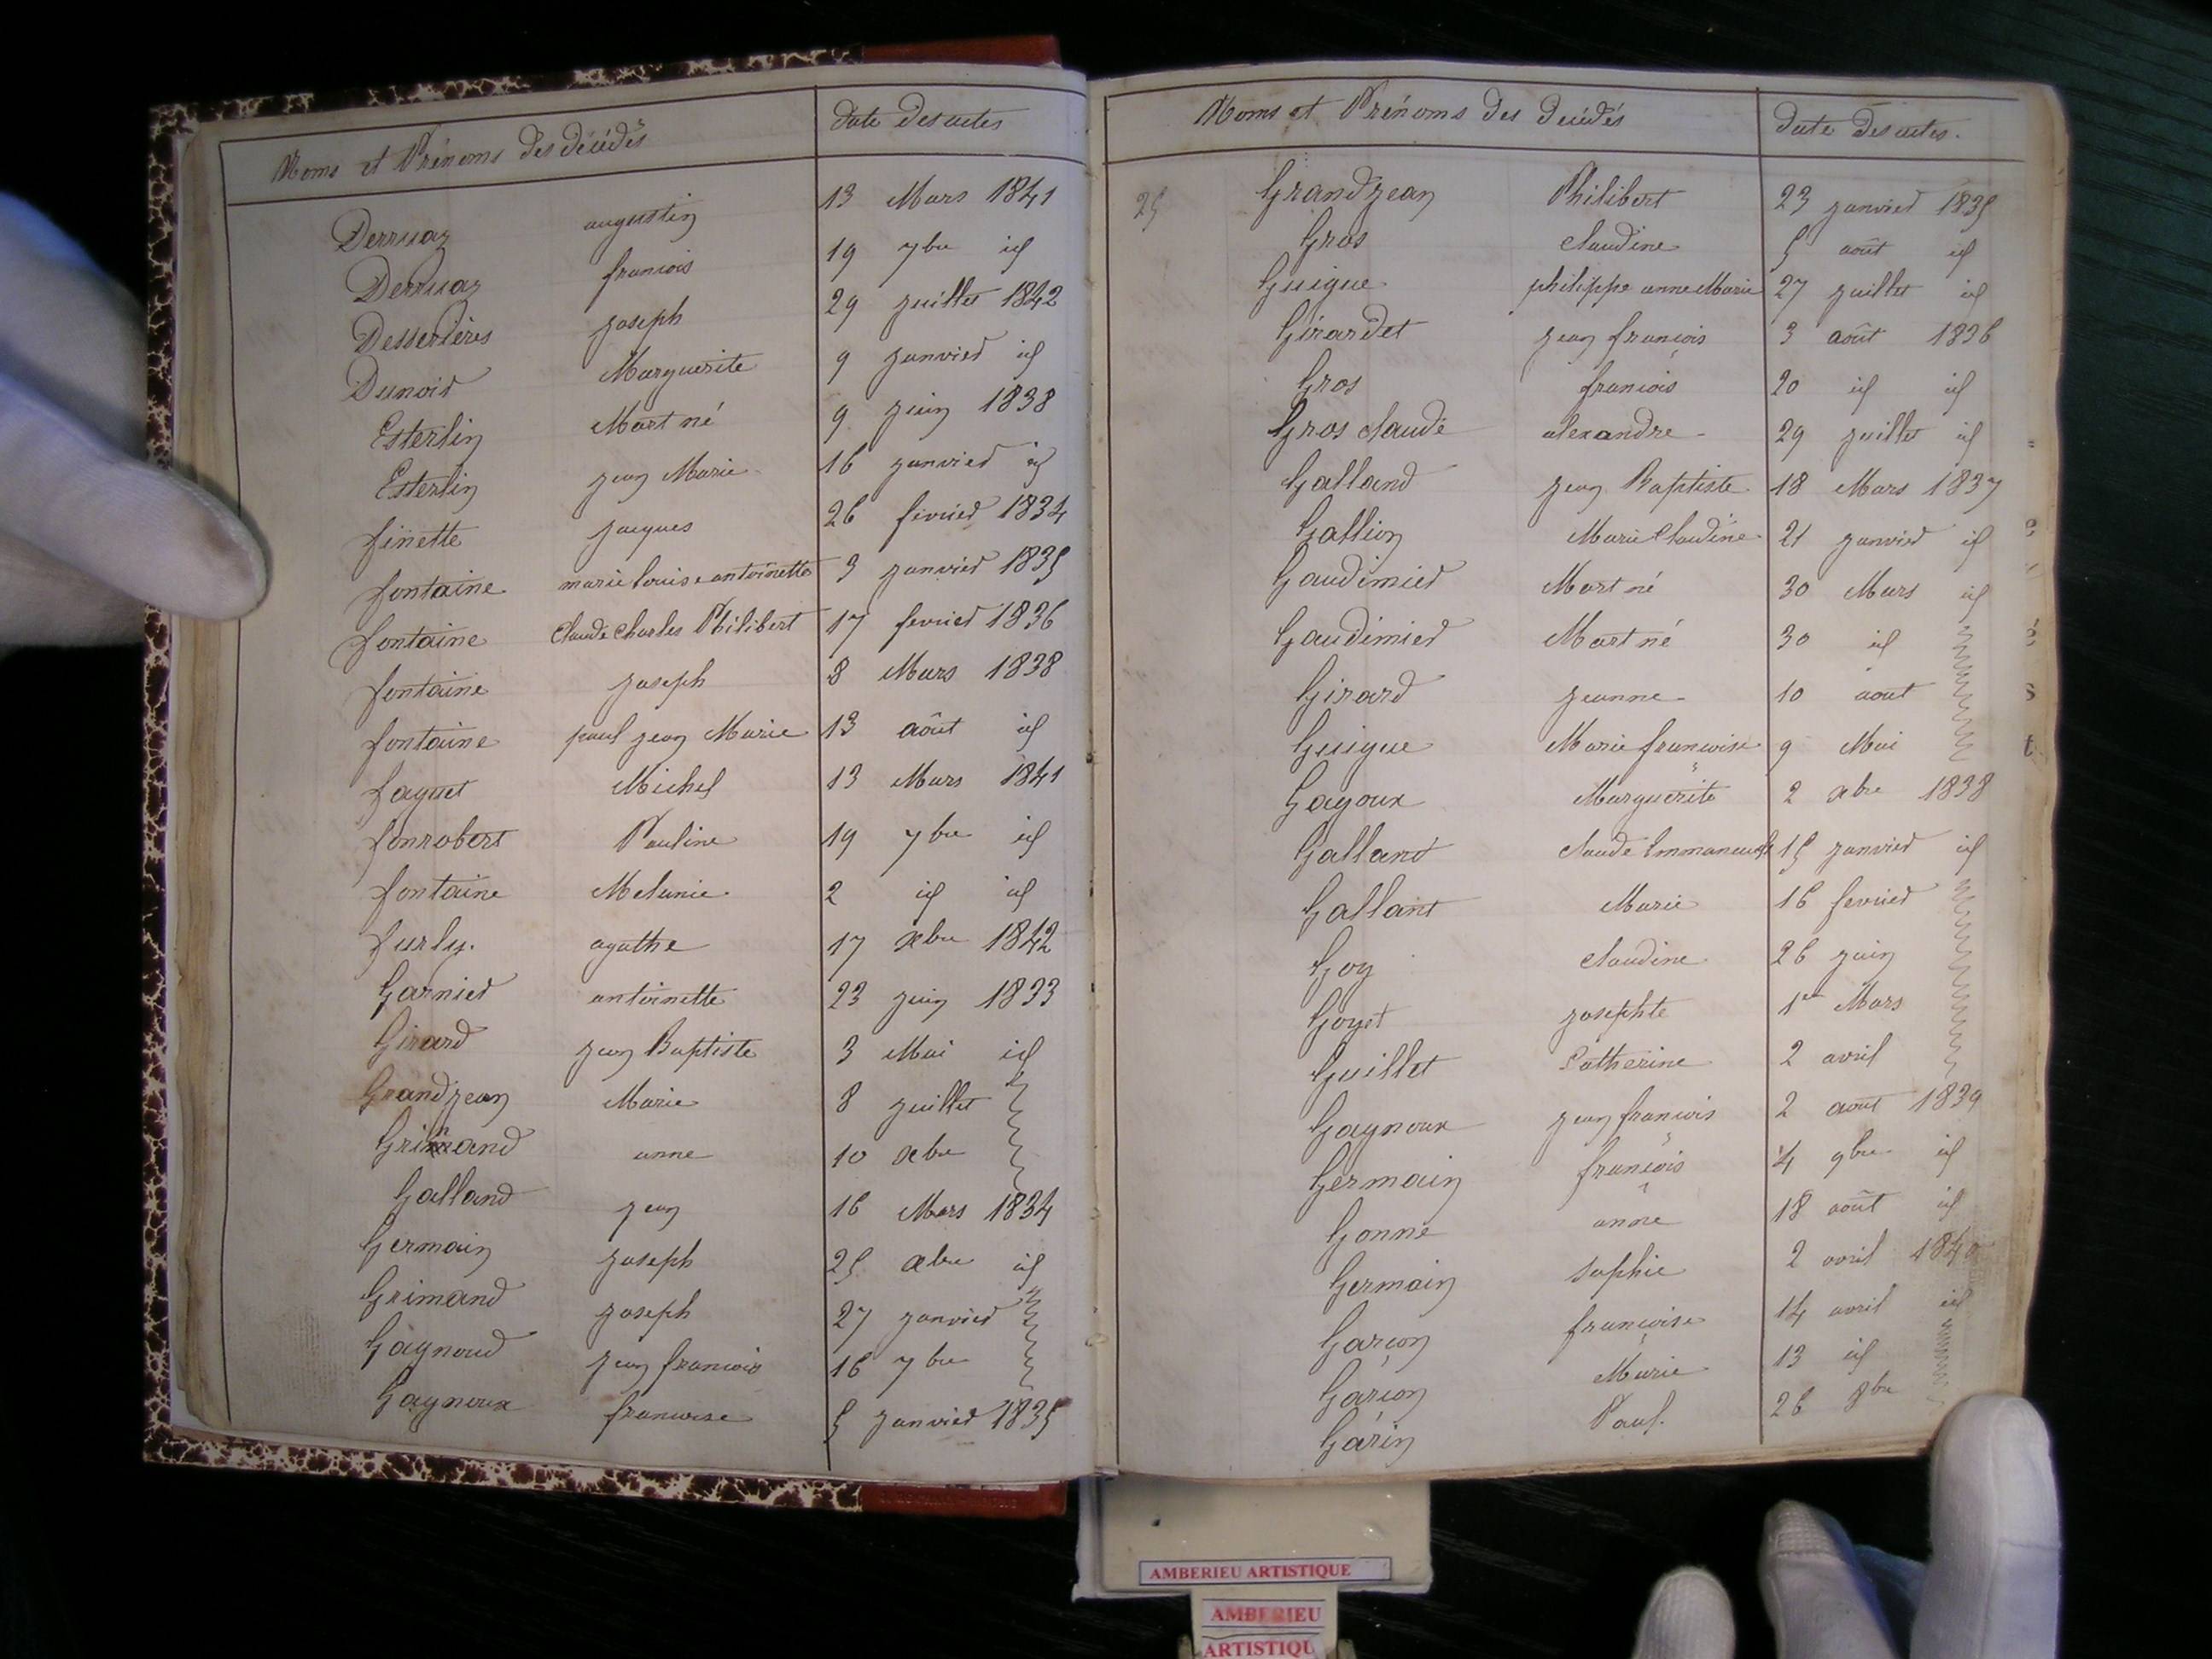 Noms et Prénoms des décédés date des actes
Derruaz augustin 13 Mars 1841
Derruaz francois 19 7bre id
Desserières joseph 29 juillet 1842
Dunoir Marguerite 9 janvier id
Esterlin Mort né 9 juin 1838
Esterlin jean Marie 16 janvier id
finette jacques 26 février 1834
fontaine marie louise antoinette 3 janvier 1835
fontaine Claude Charles Philibert 17 fevrier 1836
fontaine joseph 8 Mars 1838
fontaine paul jean Marie 13 août id
faguet Michel 13 Mars 1841
fonrobert Pauline 19 7bre id
fontaine Melanie 2 id id
furly. agathe 17 xbre 1842
Garnier antoinette 23 juin 1833
Girard jean Baptiste 3 Mai id
Grandjean Marie 8 juillet
Grimand anne 10 xbre
Galland jean 16 Mars 1834
Germain joseph 25 xbre id
Grimand joseph 27 janvier
Gagnoud jean francois 16 7bre
Gagnoux francoise 5 janvier 1835
Noms et Prénoms des décédés date des actes.
25 Grandjean Philibert 23 janvier 1835
Gros claudine 5 août id
Guigue philippe anne Marie 27 juillet id
Girardet jean françois 3 août 1836
Gros francois 20 id id
Gros claude alexandre 29 juillet id
Galland jean Baptiste 18 Mars 1837
Gallion Marie Claudine 21 janvier id
Gaudimier Mort né 30 Mars id
Gaudimier Mort né 30 id
Girard jeanne 10 aout
Guigue Marie françoise 9 Mai
Gagoux Marguerite 2 xbre 1838
Galland claude Emmanuel 15 janvier id
Galland Marie 16 fevrier
Goy claudine 26 juin
Goyet josephte 1er Mars
Guillet Catherine 2 avril
Gagnoux jean françois 2 aout 1839
Germain françois 4 9bre id
Gonne anne 18 août id
Germain Sophie 2 avril 1840
Garçon françoise 14 avril id
Garçon Marie 13 id
Garin Paul. 26 8bre
AMBERIEU ARTISTIQUE
AMBERIEU
ARTISTIQU